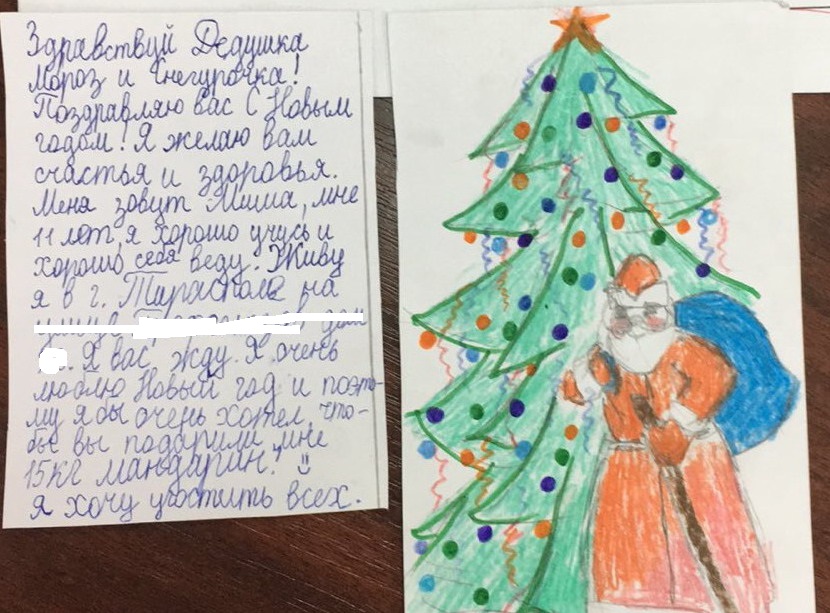 Здравствуй Дедушка
Мороз и Снегурочка!
Поздравляю вас с Новым
годом! Я желаю вам
счастья и здоровья.
Меня зовут Миша, мне
11 лет, я хорошо учусь и
хорошо себя веду. Живу
я в г. Тирасполе на
дом
. Я вас жду. Я очень
люблю Новый год и поэто-
му я бы очень хотел, что-
бы вы подарили мне
15кг мандарин!
Я хочу угостить всех.